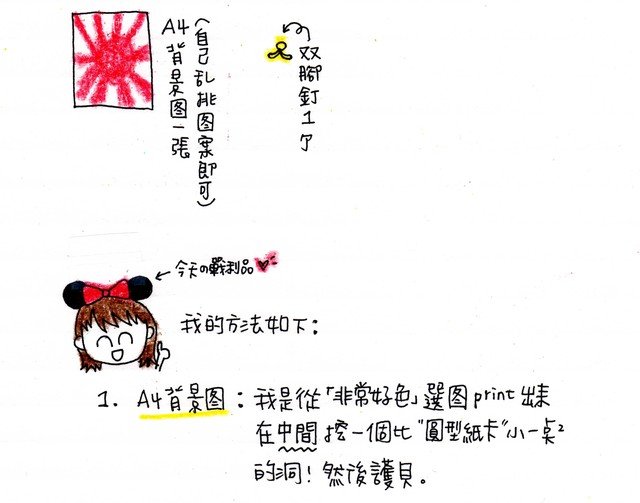 A4背景图一張
(自己乱挑图案即可)
双腳釘1个
今天の戰利品
我的方法如下：
1. A4背景图：我是從「非常好色」選图print出來
在中間挖一個比"圓型紙卡"小一點
的洞！然後護貝。